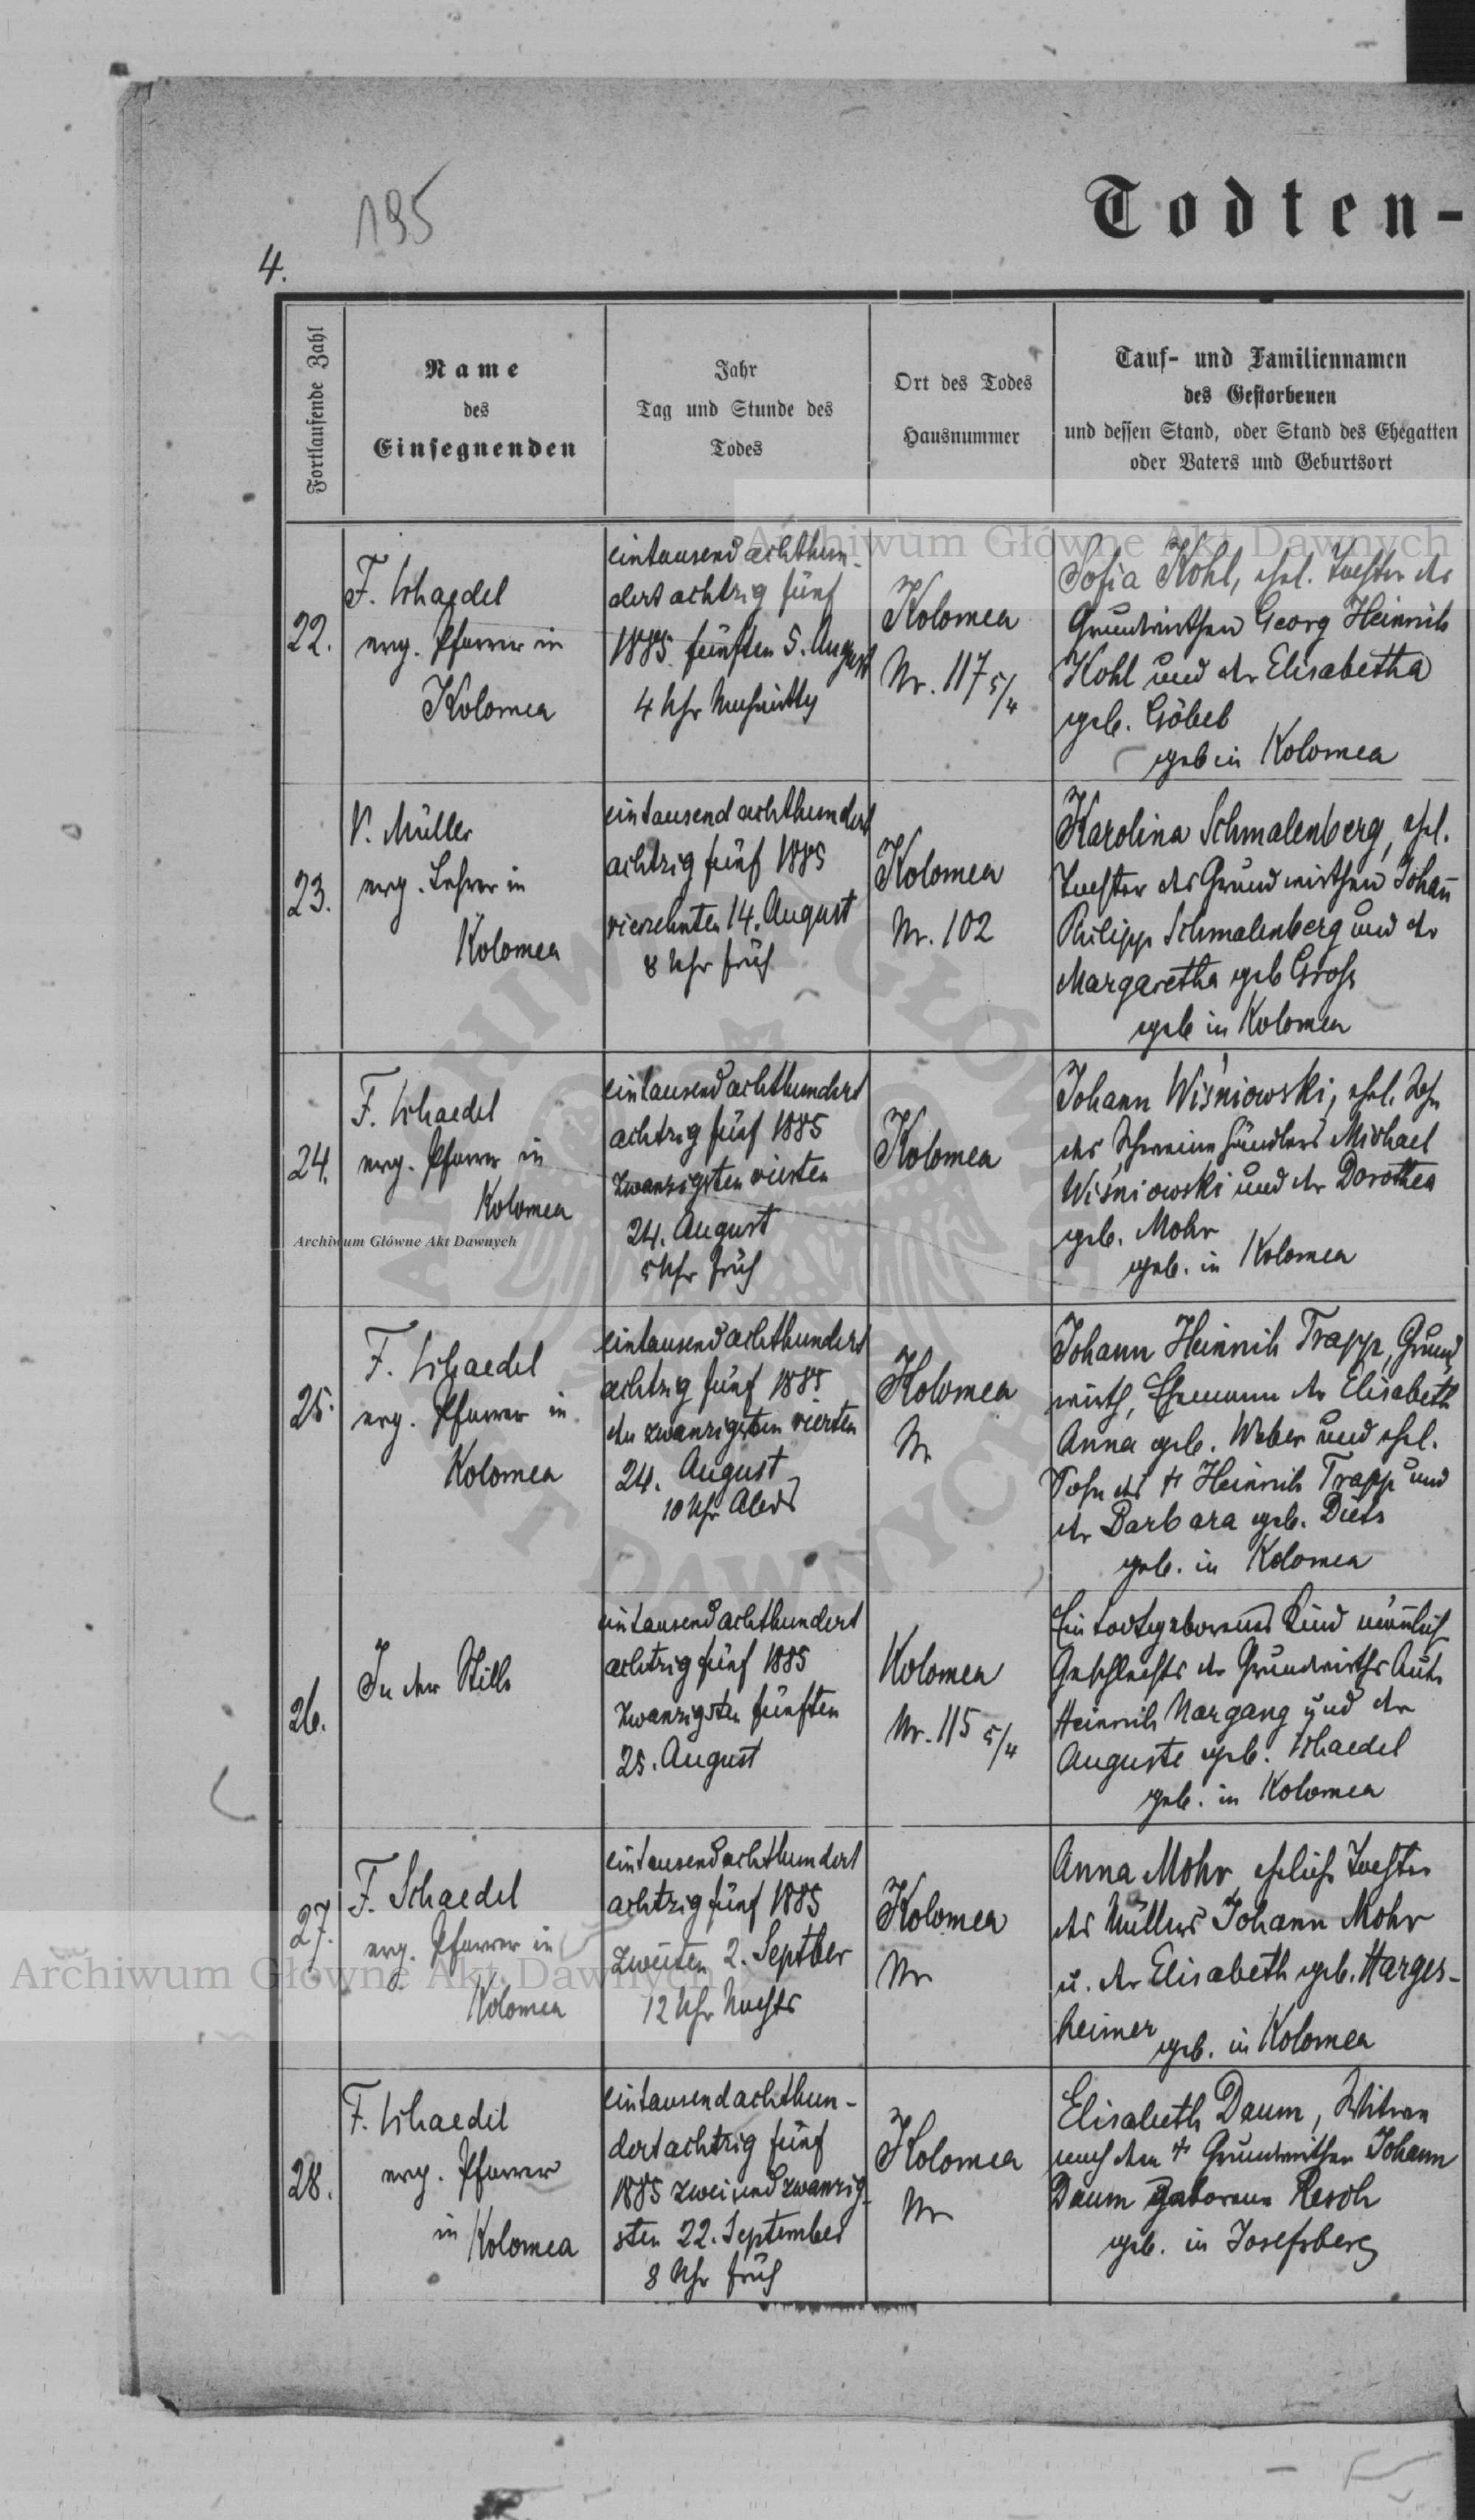 195
4.
Todten-
Fortlaufende Zahl
Name
des
Einsegnenden
Jahr
Tag und Stunde des
Todes
Ort des Todes
Hausnummer
Tauf- und Familiennamen
des Gestorbenen
und dessen Stand, oder Stand des Ehegatten
oder Vaters und Geburtsort
Archiwum Główne Akt Dawnych
22.
F. Schaedel
evg. Pfarrer in
Kolomea
eintausend achthun-
dert achtzig fünf
1885 fünften 5. August
4 Uhr Nachmittg
Kolomea
Nr. 117 5/4
Sofia Kohl, ehel. Tochter des
Grundwirthen Georg Heinrich
Kohl und der Elisabetha
geb. Göbel
geb in Kolomea
23.
V. Müller
evg. Lehrer in
Kolomea
eintausend achthundert
achtzig fünf 1885
vierzehnten 14. August
8 Uhr früh
Kolomea
Nr. 102
Karolina Schmalenberg, ehel.
Tochter des Grundwirthen Johan̄
Philipp Schmalenberg und der
Margaretha geb Groß
geb in Kolomea
24.
F. Schaedel
evg. Pfarrer in
Kolomea
Archiwum Główne Akt Dawnych
eintausend achthundert
achtzig fünf 1885
zwanzigsten vierten
24. August
5 Uhr früh
Kolomea
Johann Wiśniowski, ehel. Sohn
des Schweinehändlers Michael
Wiśniowski und der Dorothea
geb. Mohr
geb. in Kolomea
25.
F. Schaedel
evg. Pfarrer in
Kolomea
eintausend achthundert
achtzig fünf 1885
den zwanzigsten vierten
24. August
10 Uhr Abds
Kolomea
Nr
Johann Heinrich Trapp, Grund
wirth, Ehemann der Elisabeth
Anna geb. Weber und ehel.
Sohn des † Heinrich Trapp und
der Barbara geb. Diets
geb. in Kolomea
26.
In der Stille
eintausend achthundert
achtzig fünf 1885
zwanzigsten fünften
25. August
Kolomea
Nr. 115 5/4
Ein todtgeborenes Kind män̄lich
Geschlechts des Grundwirths
Heinrich Nargang und der
Auguste geb. Schaedel
geb. in Kolomea
27.
F. Schaedel
evg. Pfarrer in
Kolomea
eintausend achthundert
achtzig fünf 1885
zweiten 2. Septber
12 Uhr Nachts
Kolomea
Nr
Anna Mohr, eheliche Tochter
des Müllers Johann Mohr
u. der Elisabeth geb. Harges-
heimer
geb. in Kolomea
Archiwum Główne Akt Dawnych
28.
F. Schaedel
evg. Pfarrer
in Kolomea
eintausend achthun-
dert achtzig fünf
1885 zwei und zwanzig-
sten 22. September
8 Uhr früh
Kolomea
Nr
Elisabeth Daum, Witwe
nach dem † Grundwirthen Johann
Daum geborene Resch
geb. in Josefsberg
ARCHIWUM GŁÓWNE AKT DAWNYCH